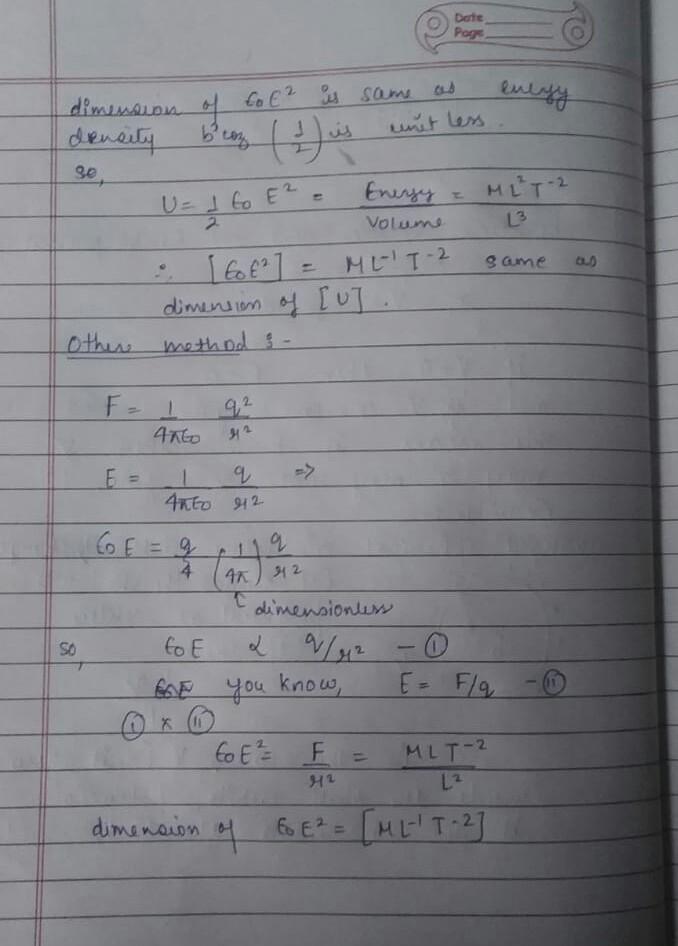 Date
Page
dimension of ϵ0E² is same as energy
density b'coz (1/2) is unit less.
so,
U = 1/2 ϵ0 E² = Energy/Volume = ML²T⁻²/L³
∴ [ϵ0E²] = ML⁻¹T⁻² same as
dimension of [U].
Other method :-
F = 1/4πϵ0 q²/r²
E = 1/4πϵ0 q/r² =>
ϵ0 E = (1/4π) q/r²
dimensionless
so, ϵ0E ∝ q/r² - (I)
you know, E = F/q - (II)
(I) × (II)
ϵ0E² = F/r² = MLT⁻²/L²
dimension of ϵ0E² = [ML⁻¹T⁻²]